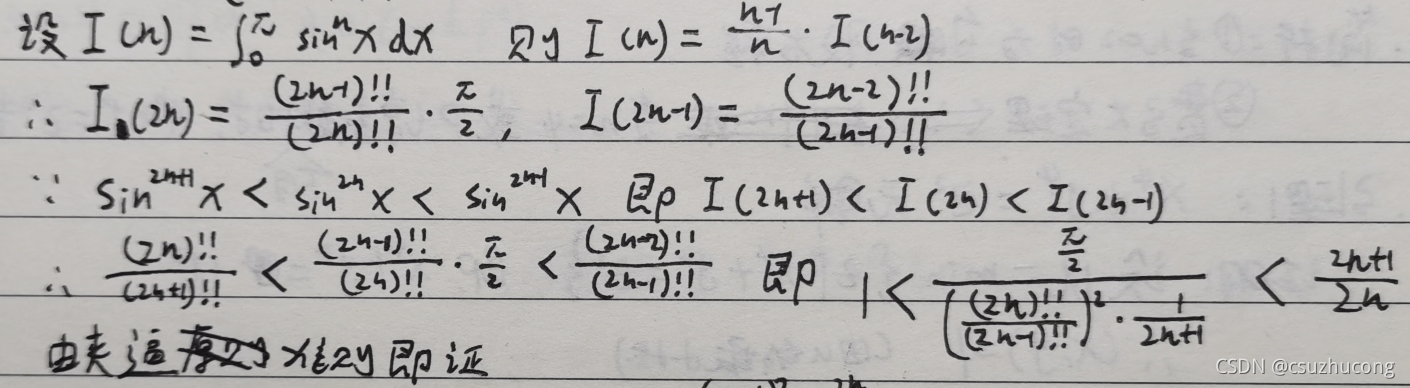 设 I(n) = ∫₀^π sinⁿx dx 则 I(n) = (n-1)/n · I(n-2)
∴ I(2n) = (2n-1)!!/(2n)!! · π/2, I(2n-1) = (2n-2)!!/(2n-1)!!
∵ sin^{2n+1}x < sin^{2n}x < sin^{2n-1}x 即 I(2n+1) < I(2n) < I(2n-1)
∴ (2n)!!/(2n+1)!! < (2n-1)!!/(2n)!! · π/2 < (2n-2)!!/(2n-1)!! 即 1 < (π/2)/(((2n)!!/(2n-1)!!)² · 1/(2n+1)) < (2n+1)/2n
由夹逼准则即证
CSDN @csuzhucong